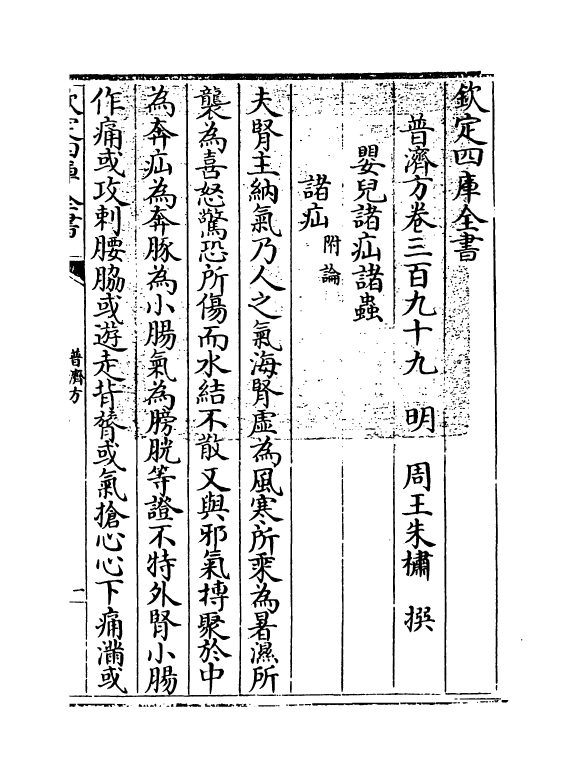 欽定四庫全書
普濟方卷三百九十九　明　周王朱橚　撰
嬰兒諸疝諸蟲
諸疝附論
夫腎主納氣乃人之氣海腎虛為風寒所乘為暑濕所
襲為喜怒驚恐所傷而水結不散又與邪氣摶聚於中
為奔疝為奔豚為小腸氣為膀胱等證不特外腎小腸
作痛或攻刺腰脇或遊走背膂或氣搶心心下痛滿或
欽定四庫全書
普濟方